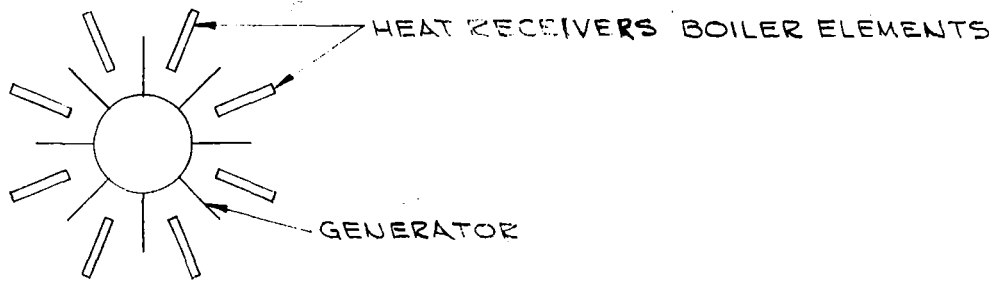 HEAT RECEIVERS BOILER ELEMENTS
GENERATOR